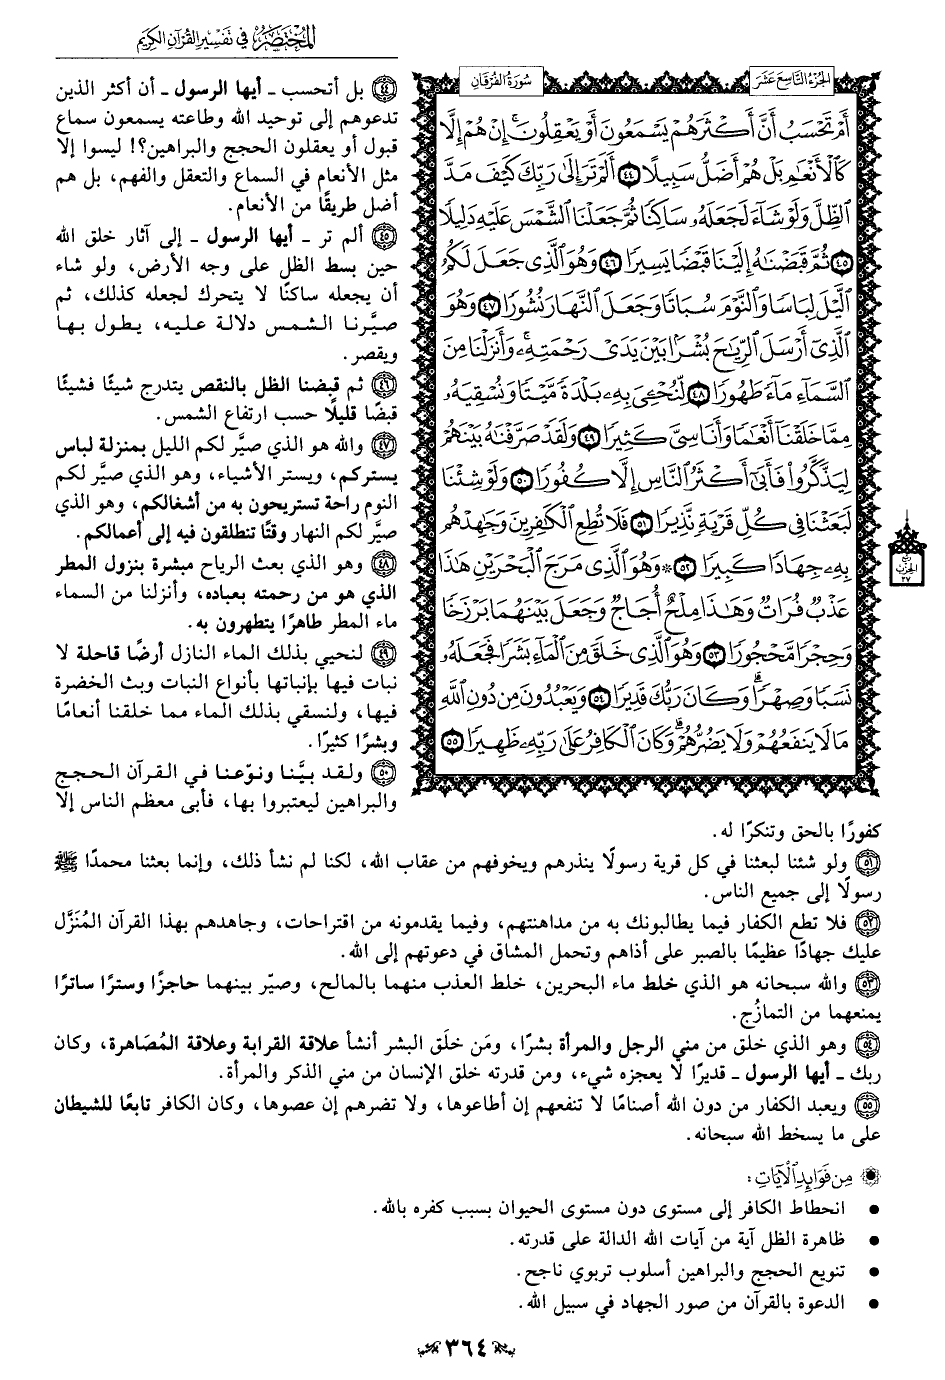 المختصر في تفسير القرآن الكريم
الجزء التاسع عشر
سورة الفرقان
أَمْ تَحْسَبُ أَنَّ أَكْثَرَهُمْ يَسْمَعُونَ أَوْ يَعْقِلُونَ ۚ إِنْ هُمْ إِلَّا
كَالْأَنْعَٰمِ بَلْ هُمْ أَضَلُّ سَبِيلًا ٤٤ أَلَمْ تَرَ إِلَىٰ رَبِّكَ كَيْفَ مَدَّ
ٱلظِّلَّ وَلَوْ شَآءَ لَجَعَلَهُۥ سَاكِنًا ثُمَّ جَعَلْنَا ٱلشَّمْسَ عَلَيْهِ دَلِيلًا
٤٥ ثُمَّ قَبَضْنَٰهُ إِلَيْنَا قَبْضًا يَسِيرًا ٤٦ وَهُوَ ٱلَّذِى جَعَلَ لَكُمُ
ٱلَّيْلَ لِبَاسًا وَٱلنَّوْمَ سُبَاتًا وَجَعَلَ ٱلنَّهَارَ نُشُورًا ٤٧ وَهُوَ
ٱلَّذِىٓ أَرْسَلَ ٱلرِّيَٰحَ بُشْرًۢا بَيْنَ يَدَىْ رَحْمَتِهِۦ ۚ وَأَنزَلْنَا مِنَ
ٱلسَّمَآءِ مَآءً طَهُورًا ٤٨ لِّنُحْـِۧىَ بِهِۦ بَلْدَةً مَّيْتًا وَنُسْقِيَهُۥ
مِمَّا خَلَقْنَآ أَنْعَٰمًا وَأَنَاسِىَّ كَثِيرًا ٤٩ وَلَقَدْ صَرَّفْنَٰهُ بَيْنَهُمْ
لِيَذَّكَّرُوا۟ فَأَبَىٰٓ أَكْثَرُ ٱلنَّاسِ إِلَّا كُفُورًا ٥٠ وَلَوْ شِئْنَا
لَبَعَثْنَا فِى كُلِّ قَرْيَةٍ نَّذِيرًا ٥١ فَلَا تُطِعِ ٱلْكَٰفِرِينَ وَجَٰهِدْهُم
بِهِۦ جِهَادًا كَبِيرًا ٥٢ ۞ وَهُوَ ٱلَّذِى مَرَجَ ٱلْبَحْرَيْنِ هَٰذَا
عَذْبٌ فُرَاتٌ وَهَٰذَا مِلْحٌ أُجَاجٌ وَجَعَلَ بَيْنَهُمَا بَرْزَخًا
وَحِجْرًا مَّحْجُورًا ٥٣ وَهُوَ ٱلَّذِى خَلَقَ مِنَ ٱلْمَآءِ بَشَرًا فَجَعَلَهُۥ
نَسَبًا وَصِهْرًا ۗ وَكَانَ رَبُّكَ قَدِيرًا ٥٤ وَيَعْبُدُونَ مِن دُونِ ٱللَّهِ
مَا لَا يَنفَعُهُمْ وَلَا يَضُرُّهُمْ ۗ وَكَانَ ٱلْكَافِرُ عَلَىٰ رَبِّهِۦ ظَهِيرًا ٥٥
ربع
الحزب
٣٧
٤٤ بل أتحسب ـ أيها الرسول ـ أن أكثر الذين
تدعوهم إلى توحيد الله وطاعته يسمعون سماع
قبول أو يعقلون الحجج والبراهين؟! ليسوا إلا
مثل الأنعام في السماع والتعقل والفهم، بل هم
أضل طريقًا من الأنعام.
٤٥ ألم تر ـ أيها الرسول ـ إلى آثار خلق الله
حين بسط الظل على وجه الأرض، ولو شاء
أن يجعله ساكنًا لا يتحرك لجعله كذلك، ثم
صيَّرنا الشمس دلالة عليه، يطول بها
ويقصر.
٤٦ ثم قبضنا الظل بالنقص يتدرج شيئًا فشيئًا
قبضًا قليلًا حسب ارتفاع الشمس.
٤٧ والله هو الذي صيَّر لكم الليل بمنزلة لباس
يستركم، ويستر الأشياء، وهو الذي صيَّر لكم
النوم راحة تستريحون به من أشغالكم، وهو الذي
صيَّر لكم النهار وقتًا تنطلقون فيه إلى أعمالكم.
٤٨ وهو الذي بعث الرياح مبشرة بنزول المطر
الذي هو من رحمته بعباده، وأنزلنا من السماء
ماء المطر طاهرًا يتطهرون به.
٤٩ لنحيي بذلك الماء النازل أرضًا قاحلة لا
نبات فيها بإنباتها بأنواع النبات وبث الخضرة
فيها، ولنسقي بذلك الماء مما خلقنا أنعامًا
وبشرًا كثيرًا.
٥٠ ولقد بيَّنا ونوّعنا في القرآن الحجج
والبراهين ليعتبروا بها، فأبى معظم الناس إلا
كفورًا بالحق وتنكرًا له.
٥١ ولو شئنا لبعثنا في كل قرية رسولًا ينذرهم ويخوفهم من عقاب الله، لكنا لم نشأ ذلك، وإنما بعثنا محمدًا ﷺ
رسولًا إلى جميع الناس.
٥٢ فلا تطع الكفار فيما يطالبونك به من مداهنتهم، وفيما يقدمونه من اقتراحات، وجاهدهم بهذا القرآن المُنَزَّل
عليك جهادًا عظيمًا بالصبر على أذاهم وتحمل المشاق في دعوتهم إلى الله.
٥٣ والله سبحانه هو الذي خلط ماء البحرين، خلط العذب منهما بالمالح، وصيّر بينهما حاجزًا وسترًا ساترًا
يمنعهما من التمازُج.
٥٤ وهو الذي خلق من مني الرجل والمرأة بشرًا، ومَن خلَق البشر أنشأ علاقة القرابة وعلاقة المُصَاهرة، وكان
ربك ـ أيها الرسول ـ قديرًا لا يعجزه شيء، ومن قدرته خلق الإنسان من مني الذكر والمرأة.
٥٥ ويعبد الكفار من دون الله أصنامًا لا تنفعهم إن أطاعوها، ولا تضرهم إن عصوها، وكان الكافر تابعًا للشيطان
على ما يسخط الله سبحانه.
من فوائد الآيات:
• انحطاط الكافر إلى مستوى دون مستوى الحيوان بسبب كفره بالله.
• ظاهرة الظل آية من آيات الله الدالة على قدرته.
• تنويع الحجج والبراهين أسلوب تربوي ناجح.
• الدعوة بالقرآن من صور الجهاد في سبيل الله.
٣٦٤